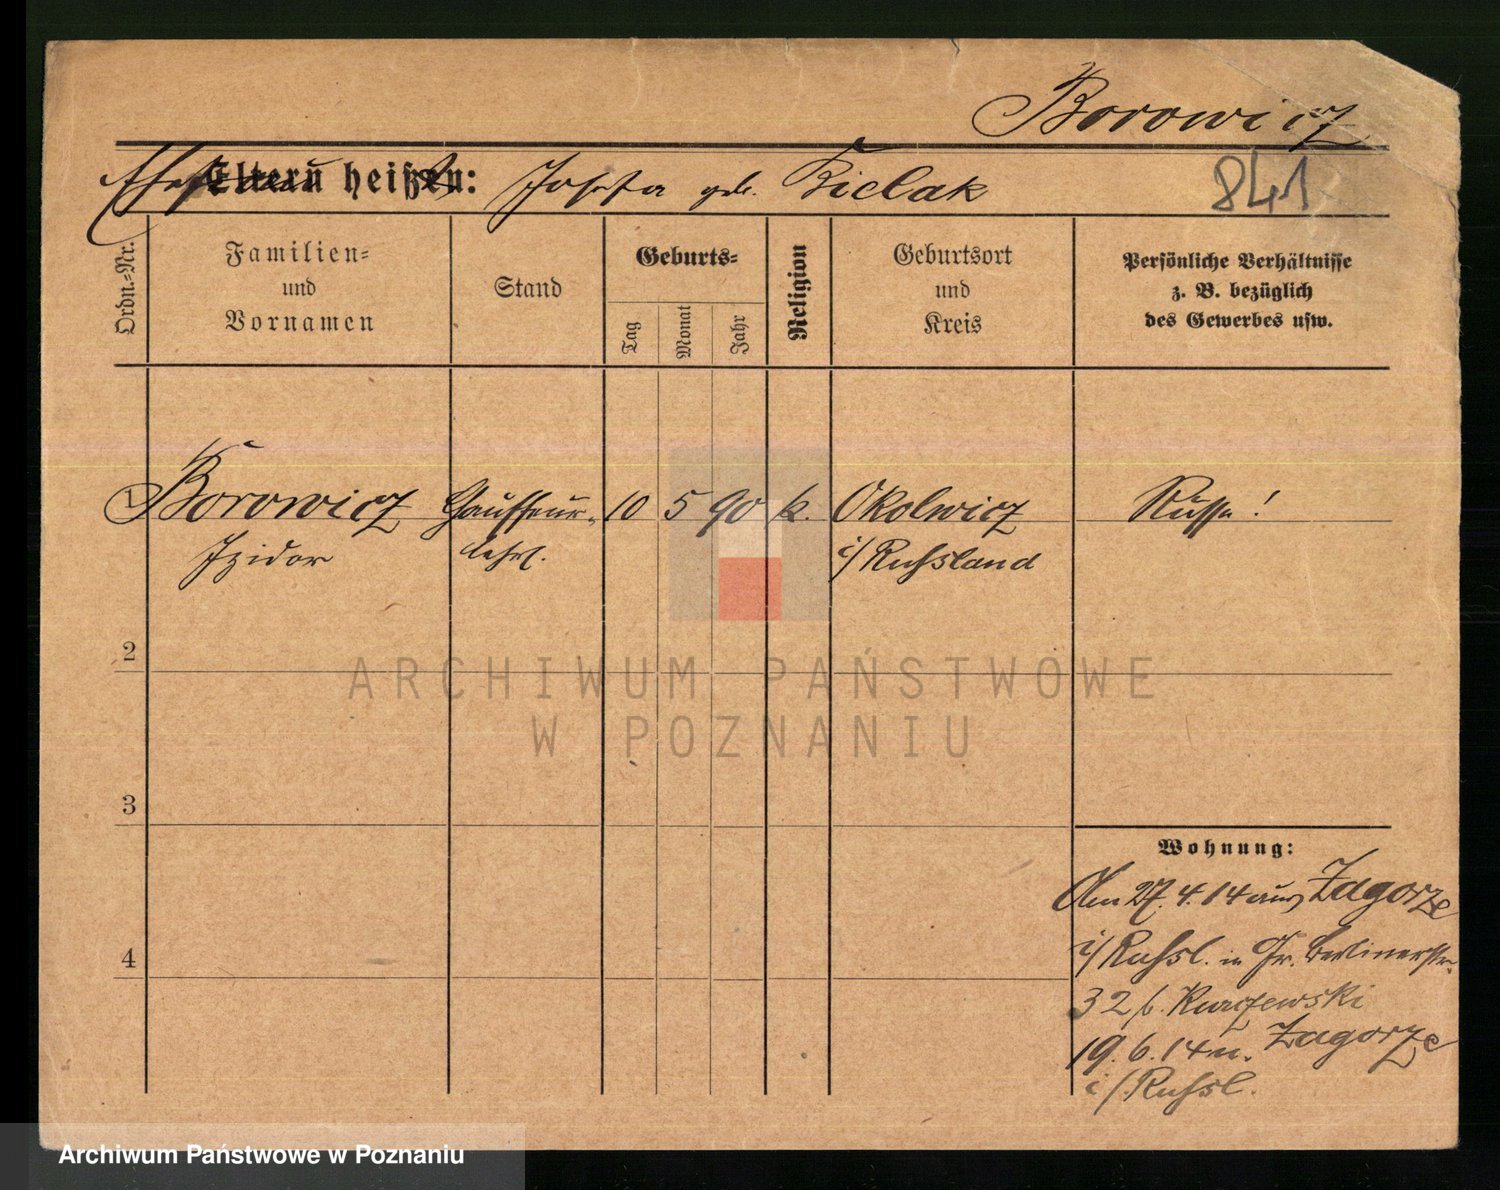 Borowicz
Ehefrau Eltern heißen: Josefa geb. Bielak
841
Ordn.-Nr.
Familien-
und
Vornamen
Stand
Geburts-
Tag
Monat
Jahr
Religion
Geburtsort
und
Kreis
Persönliche Verhältnisse
z. B. bezüglich
des Gewerbes usw.
1 Borowicz Chauffeur- 10 5 90 k. Okolwicz Russe!
Izidor lehrl. i/Russland
2
3
4
Wohnung:
Am 27.4.14 aus Zagorze
i/Russl. in Gr. Berlinerstr.
32 b. Kurczewski
19.6.14 n. Zagorze
i/Russl.
ARCHIWUM PAŃSTWOWE
W POZNANIU
Archiwum Państwowe w Poznaniu